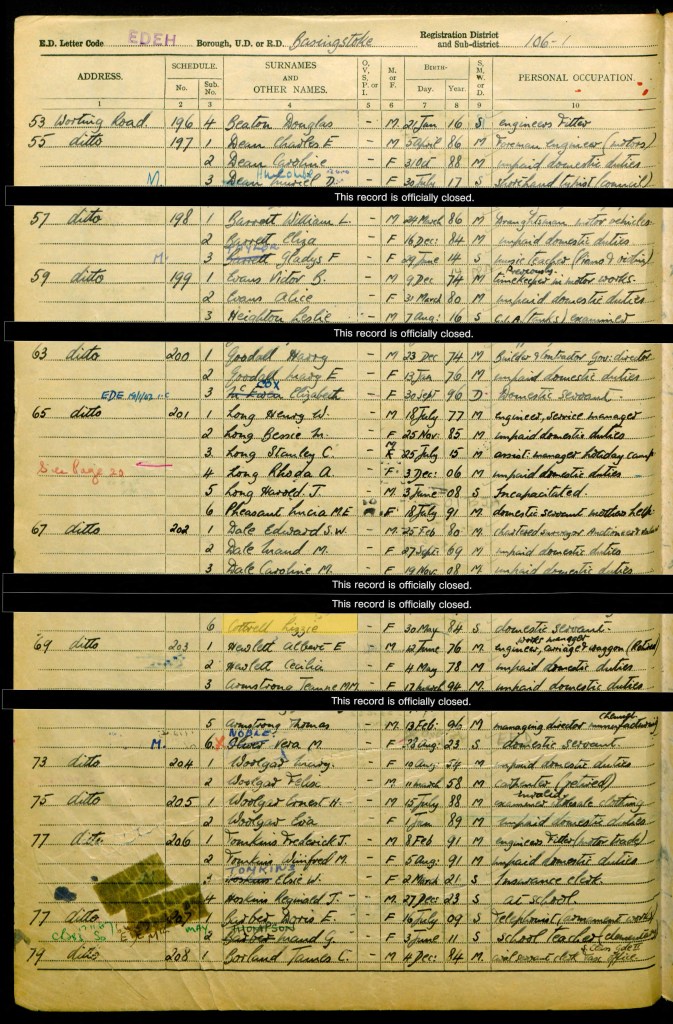 E.D. Letter Code EDEH Borough, U.D. or R.D. Basingstoke Registration District and Sub-district 106-1
ADDRESS. SCHEDULE. No. Sub. No. SURNAMES AND OTHER NAMES. O., V., S., P. or I. M. or F. BIRTH- Day. Year. S., M., W. or D. PERSONAL OCCUPATION.
1 2 3 4 5 6 7 8 9 10
53 Worting Road. 196 4 Beaton Douglas - M 21 Jan 16 S engineers fitter
55 ditto 197 1 Dean Charles E - M 5 April 86 M Foreman engineer (motors)
2 Dean Caroline - F 31 Oct 88 M unpaid domestic duties
M. 3 Dean Muriel D. - F 30 July 17 S shorthand typist (council)
This record is officially closed.
57 ditto 198 1 Barrett William L. - M 24 March 86 M Draughtsman motor vehicles
2 Barrett Eliza - F 16 Dec: 84 M unpaid domestic duties
TAYLOR
M. 3 Barrett Gladys F - F 29 June 14 S music teacher (Piano & violin)
Previously
59 ditto 199 1 Evans Victor B. - M 9 Dec 74 M timekeeper in motor works.
2 Evans Alice - F 31 March 80 M unpaid domestic duties
3 Heighton Leslie - M 7 Aug: 16 S C.I.A. (tanks) examiner
This record is officially closed.
63 ditto 200 1 Goodall Harry - M 23 Dec 74 M Builder & Contractor Gov: director
2 Goodall Mary E - F 13 Jan 76 M unpaid domestic duties
COX
EDE 3 Elizabeth - F 30 Sept 96 D Domestic Servant.
65 ditto 201 1 Long Henry W. - M 18 July 77 M engineer, service manager
2 Long Bessie M. - F 25 Nov: 85 M unpaid domestic duties
3 Long Stanley C. - M 25 July 15 M assist: manager holiday camp
See Page 20 4 Long Rhoda A. - F 3 Dec: 06 M unpaid domestic duties
5 Long Harold J. - M 3 June 08 S Incapacitated.
6 Pheasant Lucia M.E - F 18 July 91 M domestic servant mothers help
67 ditto 202 1 Dale Edward S.W - M 25 Feb 80 M chartered surveyor Auctioneer &
2 Dale Maud M. - F 27 Sept: 69 M unpaid domestic duties
3 Dale Caroline M. - F 19 Nov: 08 M unpaid domestic duties
This record is officially closed.
This record is officially closed.
6 Cottrell Lizzie - F 30 May 84 S domestic servant.
works manager
69 ditto 203 1 Hewlett Albert E - M 12 June 76 M engineer, carriage & waggon (Retired)
2 Hewlett Cecilia - F 4 May 78 M unpaid domestic duties
3 Armstrong M.M. - F 17 March 94 M. unpaid domestic duties
This record is officially closed.
5 Armstrong Thomas - M 13 Feb: 96 M managing director manufacturing
NOBLE
M. 6 Oliver Vera M. - F 23 Aug: 23 S domestic servant.
73 ditto 204 1 Woolgar - F 10 Aug: M unpaid domestic duties
2 Woolgar Felix - M 11 March 58 M carpenter (retired)
75 ditto 205 1 Woolgar Ernest H. - M 15 July 88 M examiner clothing
2 Woolgar Eva - F 1 Jan 89 M unpaid domestic duties
77 ditto 206 1 Tomkins Frederick J. - M 8 Feb 91 M engineer Fitter (motor trade)
2 Tomkins Winifred M. - F 5 Aug: 91 M unpaid domestic duties
TOMKINS
3 Elsie W. - F 2 March 21 S Insurance clerk.
4 Hoskins Reginald J. - M. 27 Dec: 23 S at school.
77 ditto 207 1 Barber Doris E. - F 16 July 09 S Telephonist (armament works)
THOMPSON
MAY 2 Barber Maud G. - F 3 June 11 S School teacher
79 ditto 208 1 Borland James C. - M 4 Dec: 84 M. civil servant clerk office